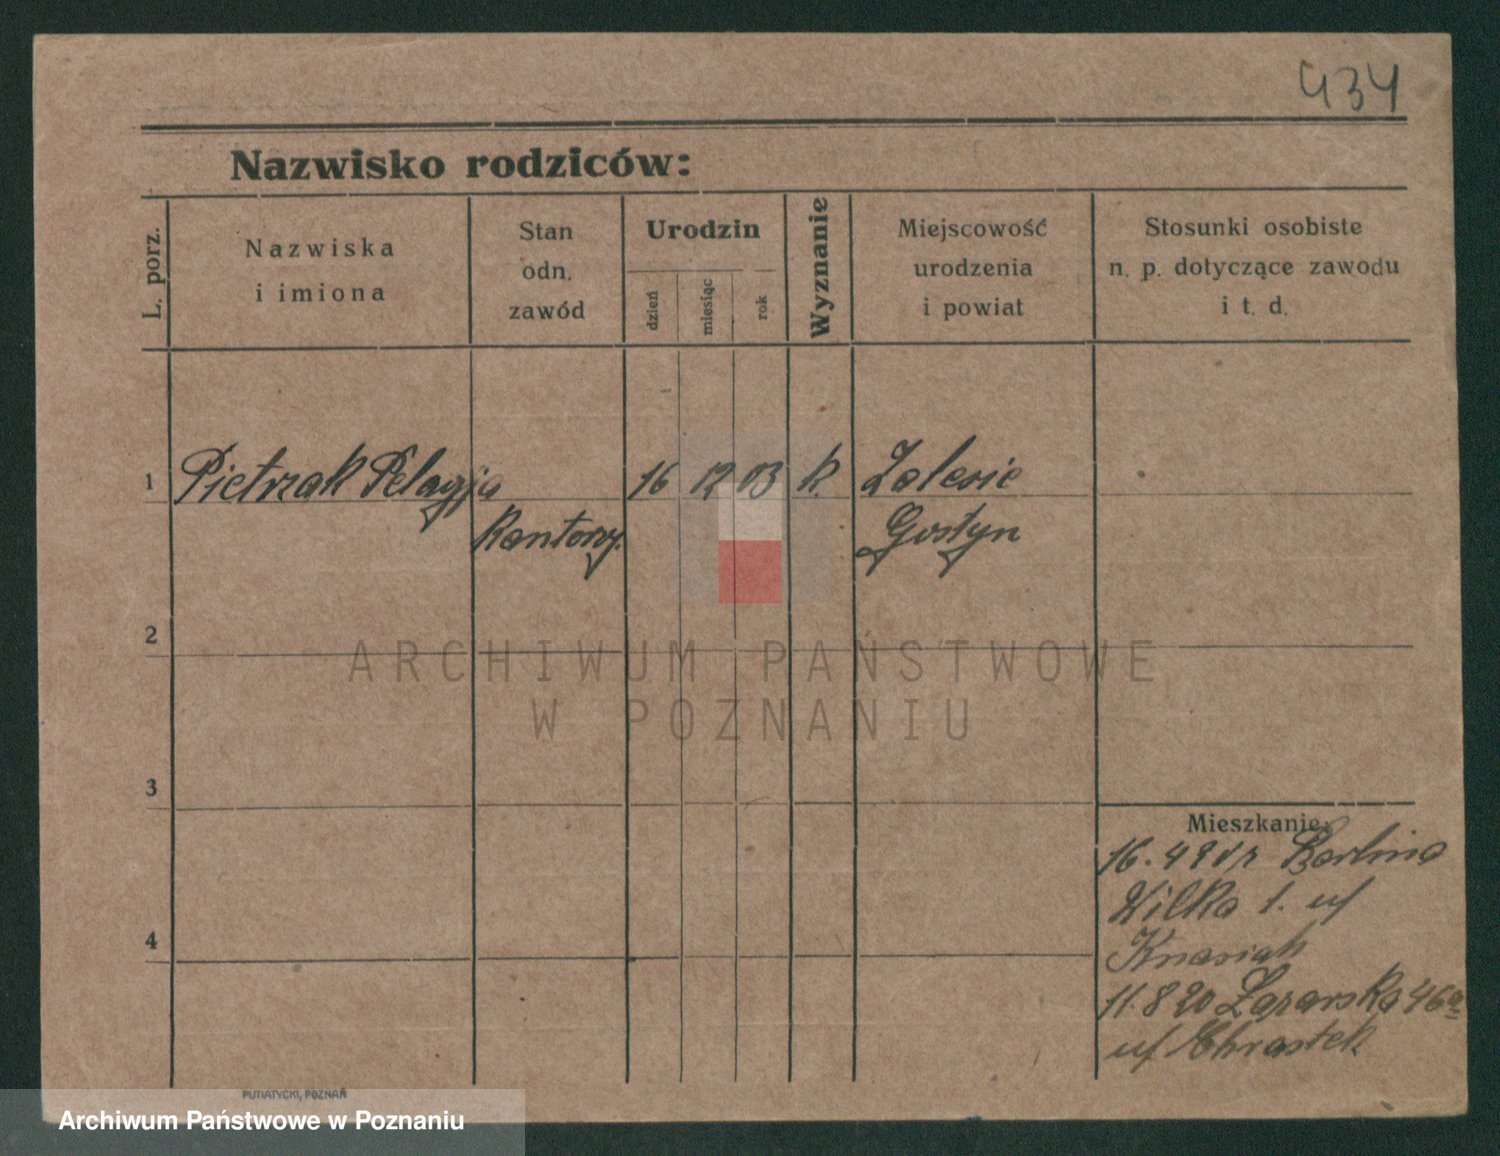 434
Nazwisko rodziców:
L. porz.
Nazwiska
i imiona
Stan
odn.
zawód
Urodzin
dzień
miesiąc
rok
Wyznanie
Miejscowość
urodzenia
i powiat
Stosunki osobiste
n. p. dotyczące zawodu
i t. d.
1
Pietrzak Pelagja
16 12 03 k. Zalesie
Gostyn
2
ARCHIWUM PAŃSTWOWE
W POZNANIU
3
Mieszkanie:
16. 4
Wilka 1. u/
4
11. 8 20 Łazarska 46a
u/ Chrastek
PUTIATYCKI, POZNAŃ
Archiwum Państwowe w Poznaniu